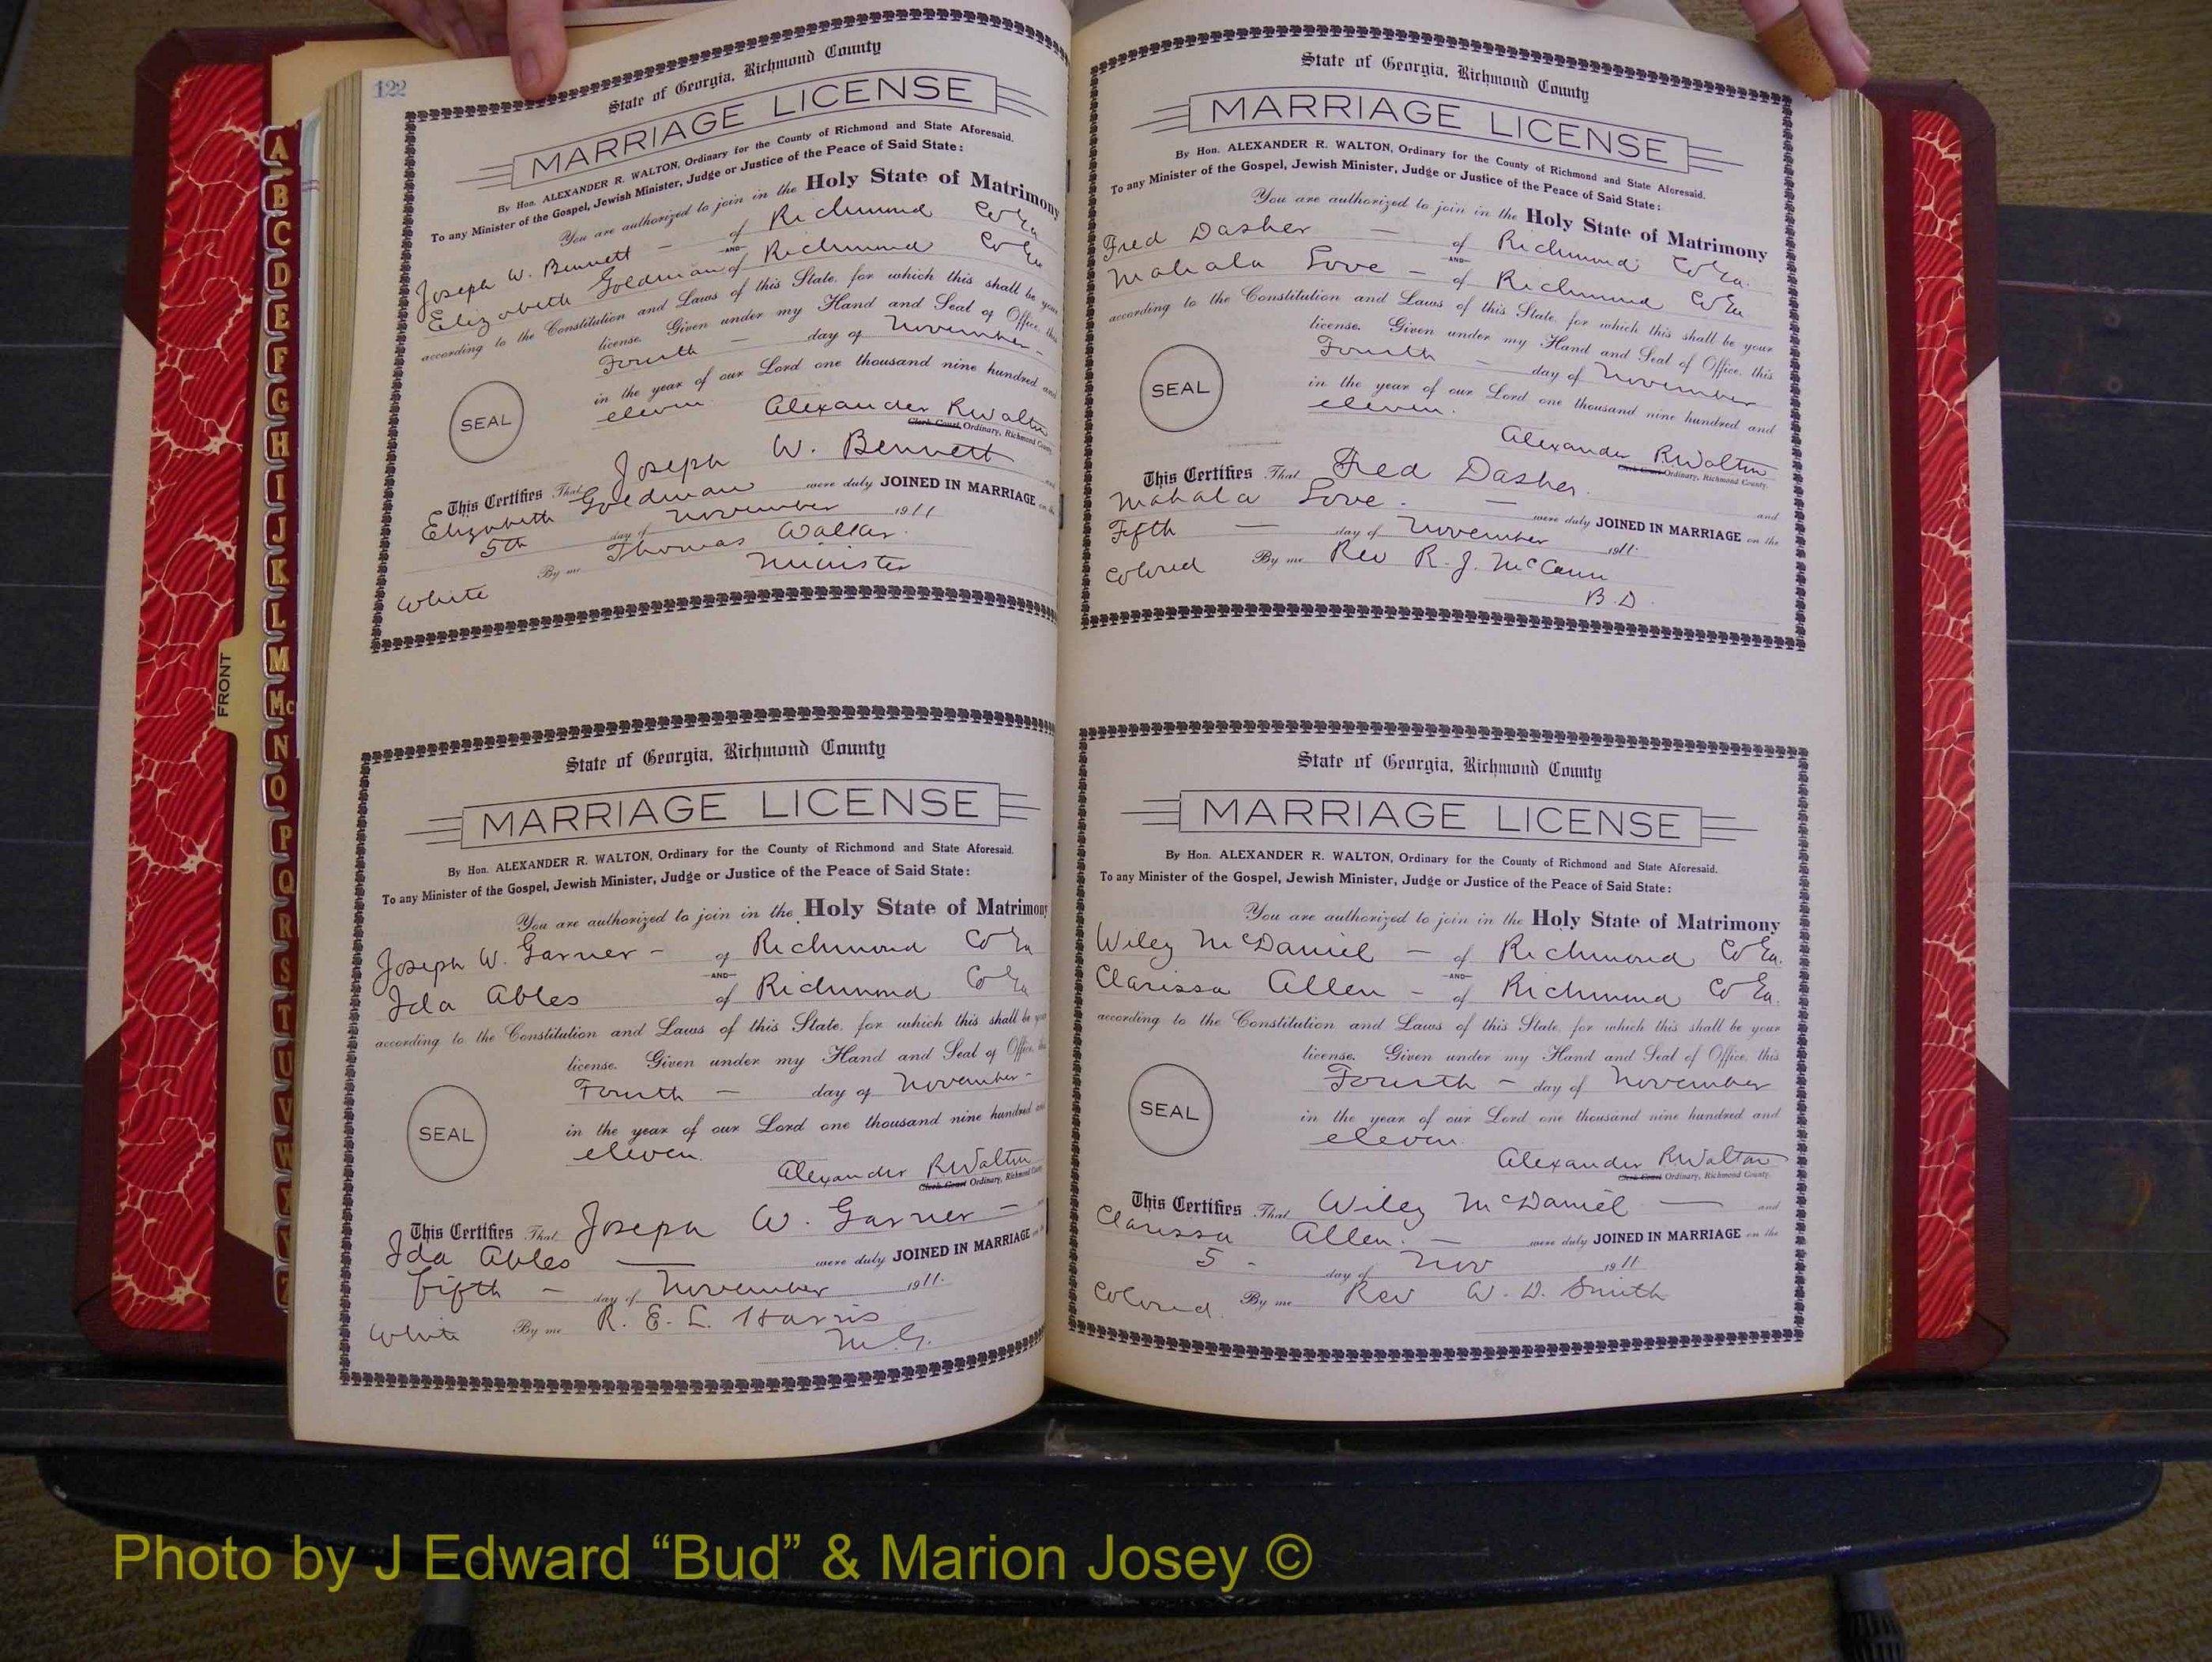 122
State of Georgia, Richmond County
MARRIAGE LICENSE
By Hon. ALEXANDER R. WALTON, Ordinary for the County of Richmond and State Aforesaid.
To any Minister of the Gospel, Jewish Minister, Judge or Justice of the Peace of Said State:
You are authorized to join in the Holy State of Matrimony
Joseph W. Bennett - of Richmond Co Ga
AND
Elizabeth Goldman of Richmond Co Ga
according to the Constitution and Laws of this State, for which this shall be your
license. Given under my Hand and Seal of Office, this
Fourth - day of November -
in the year of our Lord one thousand nine hundred and
eleven
SEAL
Alexander R Walton
Clerk Court, Ordinary, Richmond County
This Certifies That Joseph W. Bennett and
Elizabeth Goldman were duly JOINED IN MARRIAGE on the
5th day of November 1911
By me Thomas Walker.
Minister
White
State of Georgia, Richmond County
MARRIAGE LICENSE
By Hon. ALEXANDER R. WALTON, Ordinary for the County of Richmond and State Aforesaid.
To any Minister of the Gospel, Jewish Minister, Judge or Justice of the Peace of Said State:
You are authorized to join in the Holy State of Matrimony
Joseph W. Garner - of Richmond Co Ga
AND
Ida Ables of Richmond Co Ga
according to the Constitution and Laws of this State, for which this shall be your
license. Given under my Hand and Seal of Office, this
Fourth - day of November -
in the year of our Lord one thousand nine hundred and
eleven.
SEAL
Alexander R Walton
Clerk Court Ordinary, Richmond County
This Certifies That Joseph W. Garner - and
Ida Ables — were duly JOINED IN MARRIAGE on the
fifth - day of November 1911.
White By me R. E. L. Harris
M.G.
State of Georgia, Richmond County
MARRIAGE LICENSE
By Hon. ALEXANDER R. WALTON, Ordinary for the County of Richmond and State Aforesaid.
To any Minister of the Gospel, Jewish Minister, Judge or Justice of the Peace of Said State:
You are authorized to join in the Holy State of Matrimony
Fred Dasher - of Richmond Co Ga.
AND
Mahala Love - of Richmond Co Ga
according to the Constitution and Laws of this State, for which this shall be your
license. Given under my Hand and Seal of Office, this
Fourth - day of November
in the year of our Lord one thousand nine hundred and
eleven.
SEAL
Alexander R. Walton
Clerk Court Ordinary, Richmond County.
This Certifies That Fred Dasher. and
Mahala Love. — were duly JOINED IN MARRIAGE on the
Fifth — day of November 1911.
Colored By me Rev R. J. McCann
B.D.
State of Georgia, Richmond County
MARRIAGE LICENSE
By Hon. ALEXANDER R. WALTON, Ordinary for the County of Richmond and State Aforesaid.
To any Minister of the Gospel, Jewish Minister, Judge or Justice of the Peace of Said State:
You are authorized to join in the Holy State of Matrimony
Wiley McDaniel - of Richmond Co Ga.
AND
Clarissa Allen - of Richmond Co Ga.
according to the Constitution and Laws of this State, for which this shall be your
license. Given under my Hand and Seal of Office, this
Fourth - day of November
in the year of our Lord one thousand nine hundred and
eleven.
SEAL
Alexander R Walton
Clerk Court Ordinary, Richmond County.
This Certifies That Wiley McDaniel — and
Clarissa Allen. - were duly JOINED IN MARRIAGE on the
5 - day of Nov 1911.
Colored. By me Rev W. D. Smith
FRONT
A
B
C
D
E
F
G
H
I
J
K
L
M
Mc
N
O
P
Q
R
S
T
U
V
W
X
Y
Z
Photo by J Edward “Bud” & Marion Josey ©